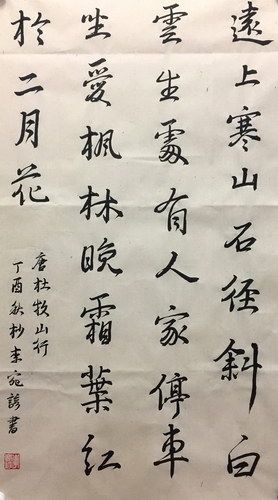 遠上寒山石径斜白
雲生處有人家停車
坐愛楓林晚霜葉紅
於二月花
唐杜牧山行
丁酉秋杪李宛諺書